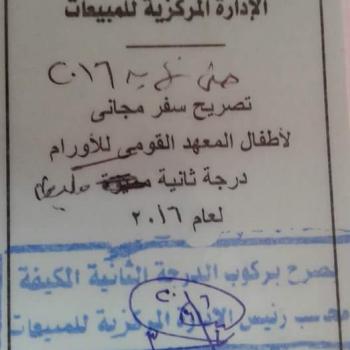 الإدارة المركزية للمبيعات
حتى نهاية ٢٠١٦
تصريح سفر مجانى
لأطفال المعهد القومى للأورام
درجة ثانية
لعام ٢٠١٦
يصرح بركوب الدرجة الثانية المكيفة
رئيس الإدارة المركزية للمبيعات